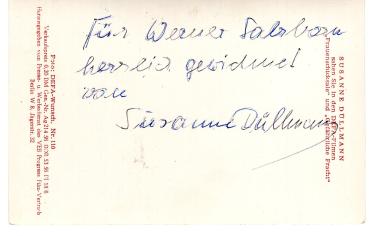 Für Werner Salzborn
herzlich gewidmet
von
Susanne Düllmann
SUSANNE DÜLLMANN
sahen Sie in den DEFA-Filmen
"Frauenschicksale" und "Gefährliche Fracht"
Foto: DEFA-Wunsch, Nr. 110
Verkaufspreis 0,20 DM
Herausgegeben vom Presse- u. Werbedienst des VEB Progress Film-Vertrieb
Berlin W 8, Jägerstr. 32